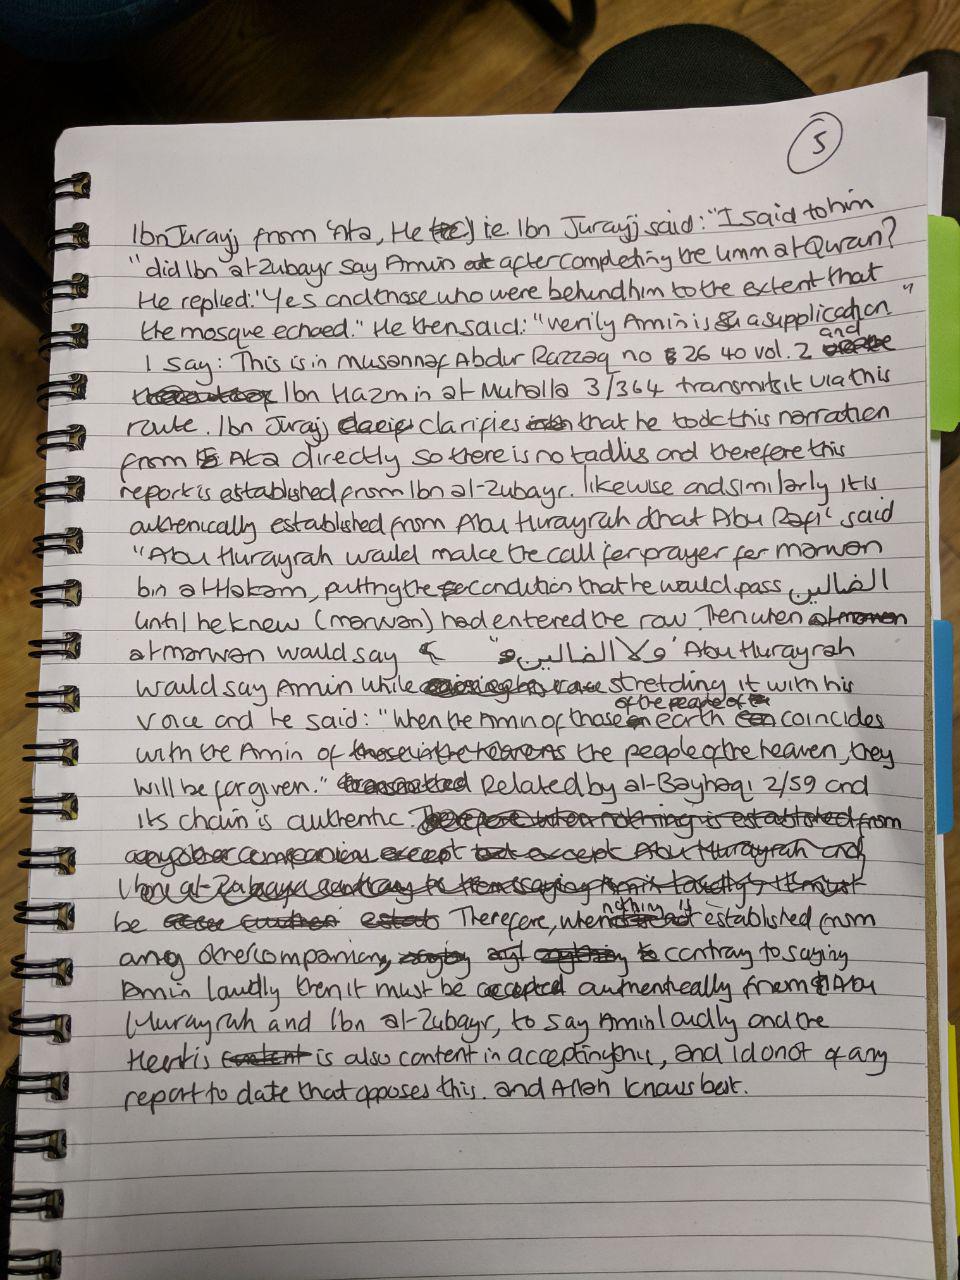 5
Ibn Jurayj from 'Ata, He ie. Ibn Jurayj said: "I said to him
"did Ibn al-Zubayr say Amin after completing the Umm al-Quran?
He replied: "Yes and those who were behind him to the extent that
the mosque echoed." He then said: "verily Amin is a supplication"
I say: This is in Musannaf Abdur Razzaq no 2640 vol. 2 and
Ibn Hazm in al-Muhalla 3/364 transmits it via this
route. Ibn Jurayj clarifies that he took this narration
from Ata directly so there is no tadlis and therefore this
report is established from Ibn al-Zubayr. likewise and similarly it is
authenically established from Abu Hurayrah that Abu Rafi' said
"Abu Hurayrah would make the call for prayer for marwan
bin al-Hakam, putting the condition that he would pass الضالين
until he knew (marwan) had entered the row. Then when
al marwan would say "ولا الضالين" Abu Hurayrah
would say Amin while stretching it with his
voice and he said: "When the Amin of those of the people of earth coincides
with the Amin of the people of the heaven, they
will be forgiven." Related by al-Bayhaqi 2/59 and
its chain is authentic.
be Therefore, when nothing is established from
any other companion, contrary to saying
Amin loudly then it must be authentically from Abu
Hurayrah and Ibn al-Zubayr, to say Amin loudly and the
Heart is is also content in accepting this, and I do not of any
report to date that opposes this. and Allah knows best.